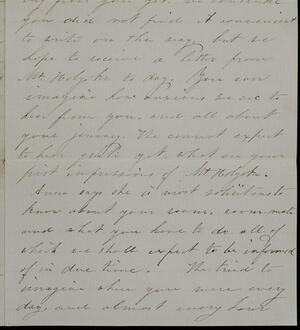 you did not find it convenient
to write on the way, but we
hope to receive a letter from
Mt Holyoke to day. You can
imagine how anxious we are to
hear from you, and all about
your journey. We cannot expect
to hear quite yet, what are your
first impressions of Mt Holyoke.
Anna says she is most solicitous to
know about your room, roommate
and what you have to do, all of
which we shall expect to be informed
of in due time. We tried to
imagine where you were every
day, and almost every hour